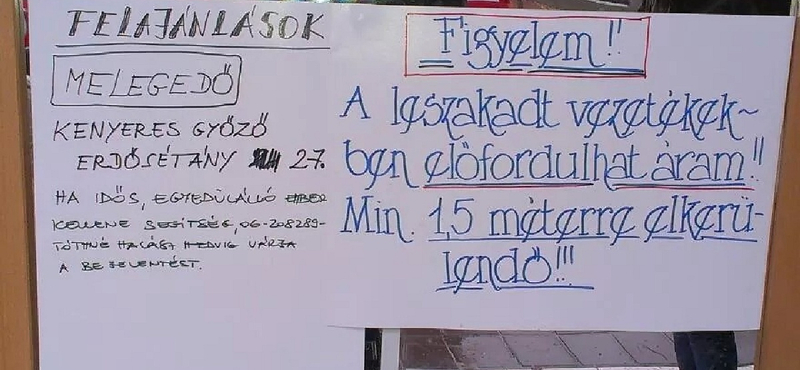 FELAJÁNLÁSOK
MELEGEDŐ
KENYERES GYŐZŐ
ERDŐSÉTÁNY 27.
HA IDŐS, EGYEDÜLÁLLÓ EMBER
KELLENE SEGÍTSÉG, 06-208289-
TÓTHNÉ HALÁSZ HEDVIG VÁRJA
A BEJELENTÉST.
Figyelem!!
A leszakadt vezetékek~
ben előfordulhat áram!!
Min. 1,5 méterre elkerü-
lendő!!!